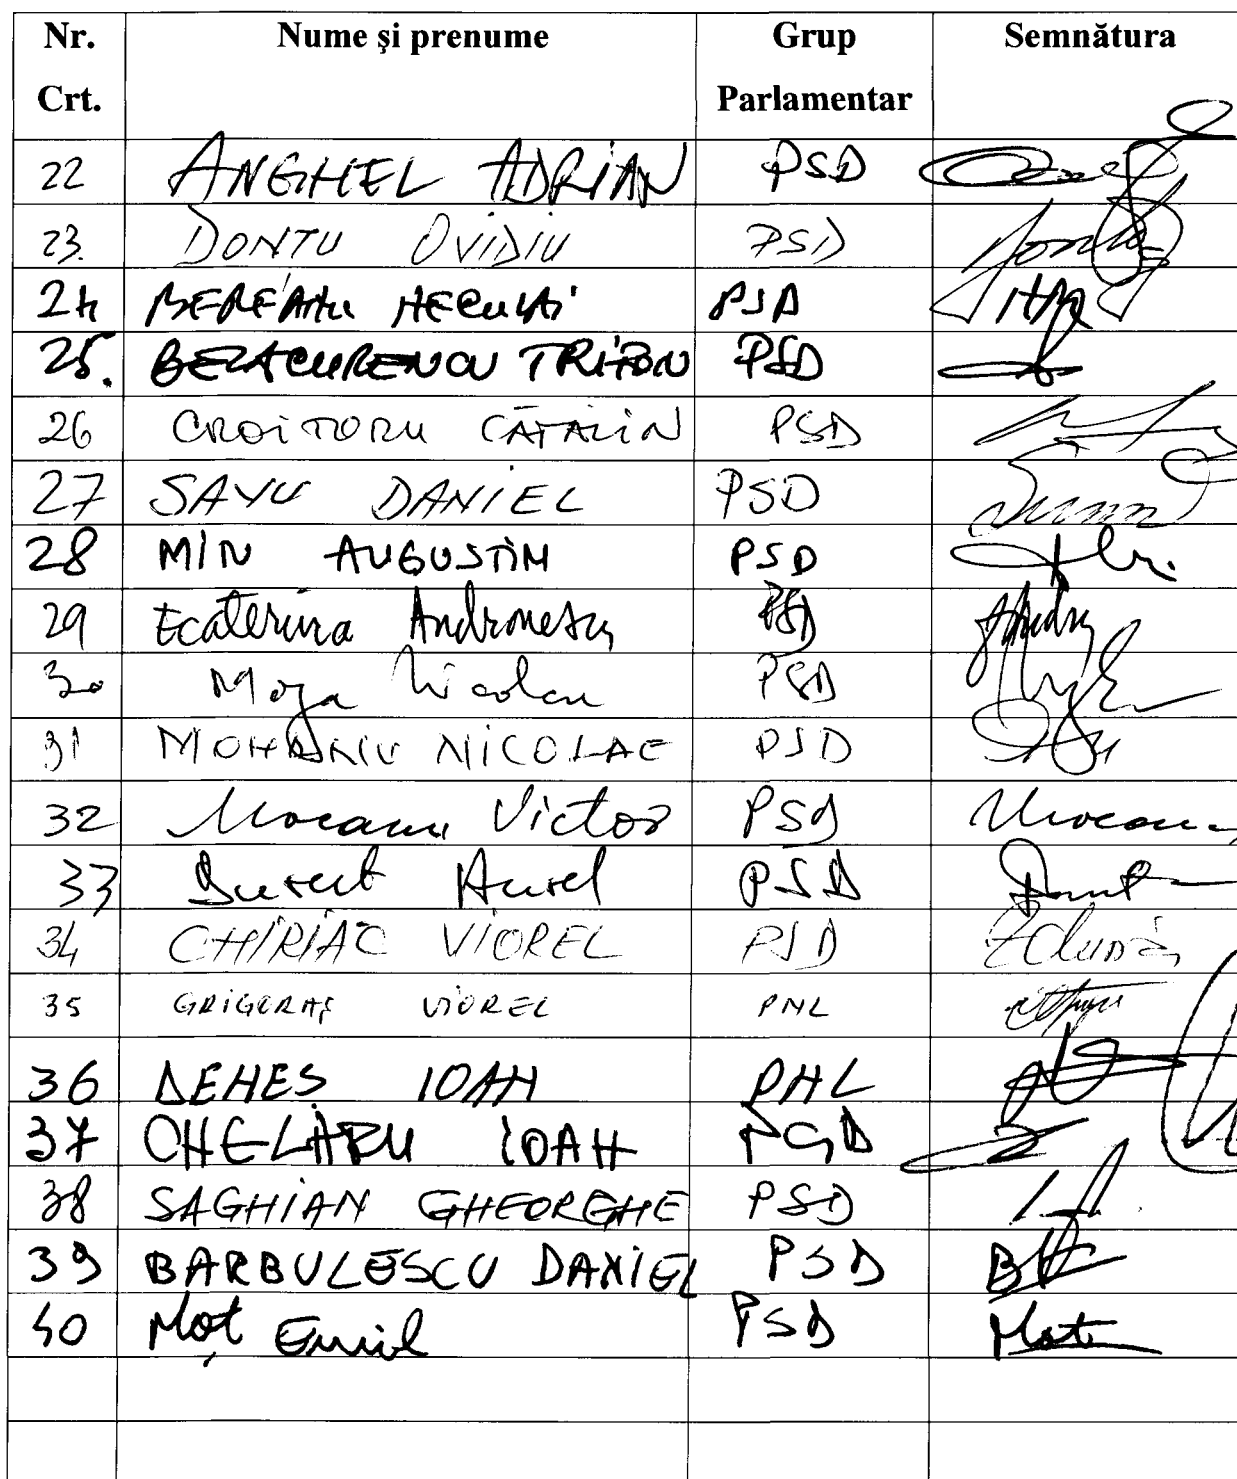 Nr. Crt. Nume și prenume Grup Parlamentar Semnătura
22 ANGHEL ADRIAN PSD
23. DONTU OVIDIU PSD
24 BEREANU NECULAI PSD
25. BELACURENCU TRIFON PSD
26 CROITORU CĂTĂLIN PSD
27 SAVU DANIEL PSD
28 MIN AUGUSTIN PSD
29 Ecaterina Andronescu PSD
30 Moga Nicolae PSD
31 MOHANU NICOLAE PSD
32 Mocanu Victor PSD Mocanu
33 Aurel PSD
34 CHIRIAC VIOREL PSD
35 GRIGORAȘ VIOREL PNL
36 DENEȘ IOAN PNL
37 CHELARU IOAN PSD
38 SAGHIAN GHEORGHE PSD
39 BARBULESCU DANIEL PSD
40 Moț Emil PSD Mot